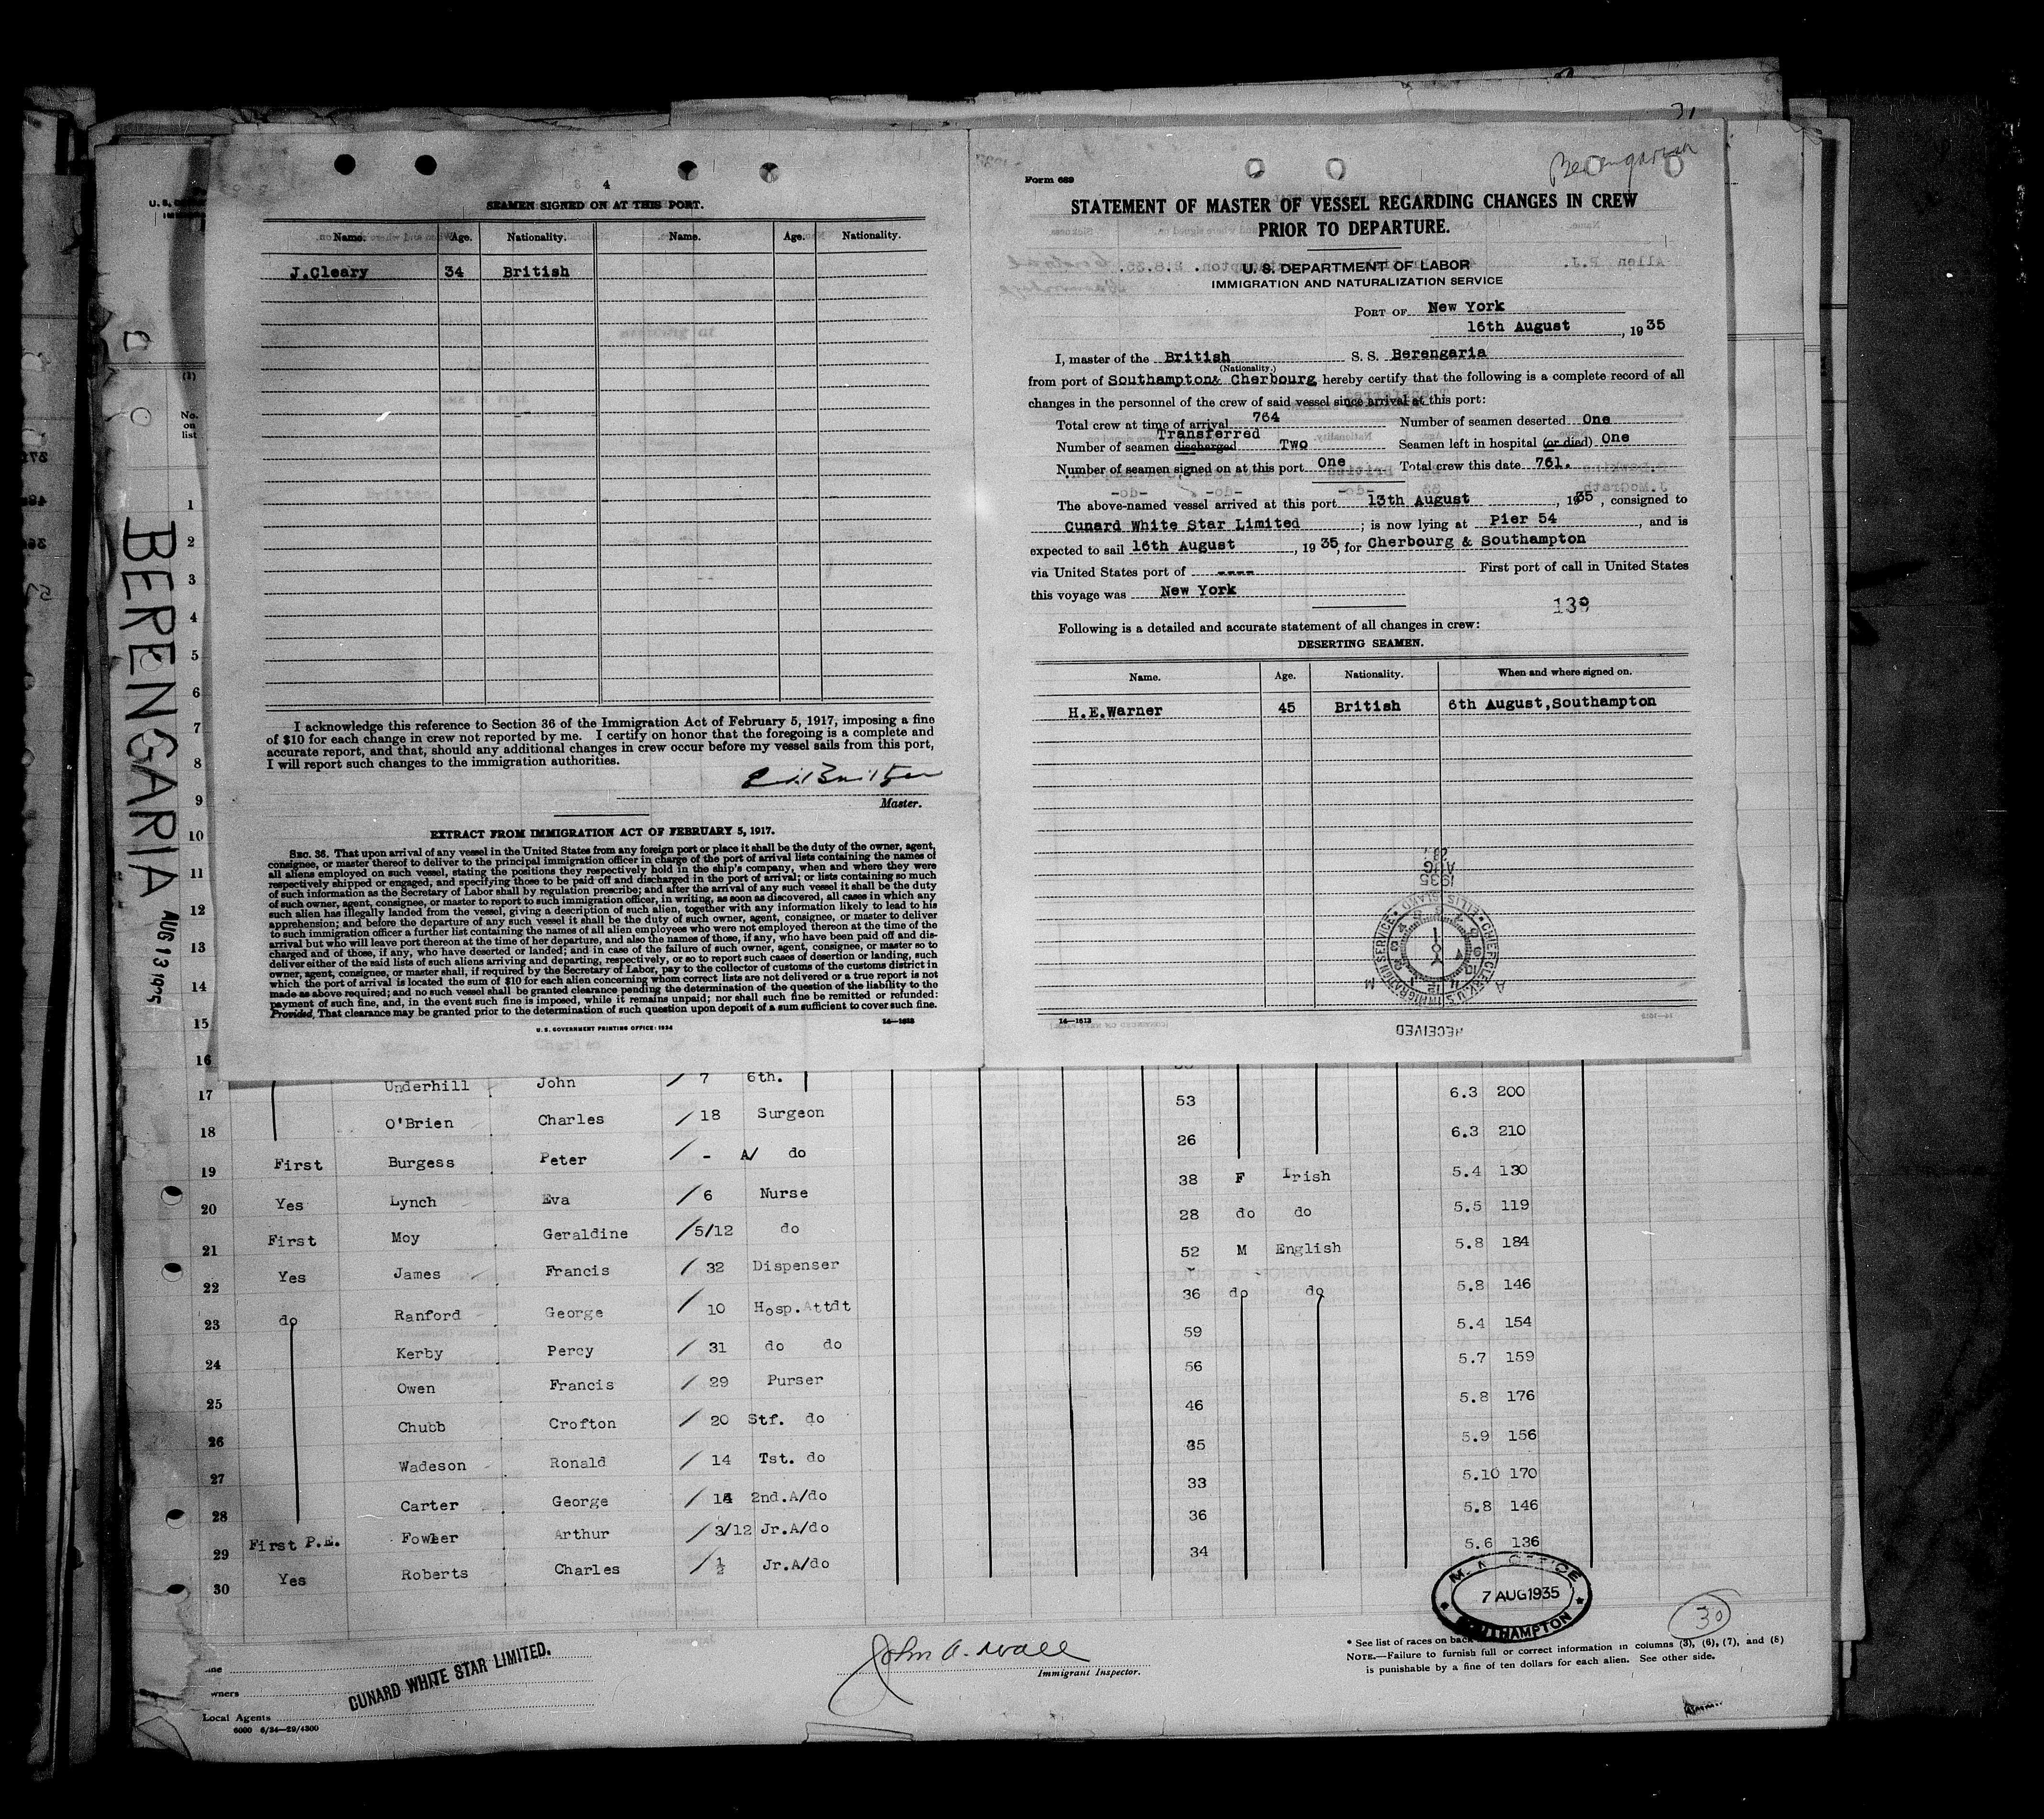 4
SEAMEN SIGNED ON AT THIS PORT.
Name. Age. Nationality. Name. Age. Nationality.
J.Cleary 34 British
I acknowledge this reference to Section 36 of the Immigration Act of February 5, 1917, imposing a fine
of $10 for each change in crew not reported by me. I certify on honor that the foregoing is a complete and
accurate report, and that, should any additional changes in crew occur before my vessel sails from this port,
I will report such changes to the immigration authorities.
Master.
EXTRACT FROM IMMIGRATION ACT OF FEBRUARY 5, 1917.
SEC. 36. That upon arrival of any vessel in the United States from any foreign port or place it shall be the duty of the owner, agent,
consignee, or master thereof to deliver to the principal immigration officer in charge of the port of arrival lists containing the names of
all aliens employed on such vessel, stating the positions they respectively hold in the ship's company, when and where they were
respectively shipped or engaged, and specifying those to be paid off and discharged in the port of arrival; or lists containing so much
of such information as the Secretary of Labor shall by regulation prescribe; and after the arrival of any such vessel it shall be the duty
of such owner, agent, consignee, or master to report to such immigration officer, in writing, as soon as discovered, all cases in which any
such alien has illegally landed from the vessel, giving a description of such alien, together with any information likely to lead to his
apprehension; and before the departure of any such vessel it shall be the duty of such owner, agent, consignee, or master to deliver
to such immigration officer a further list containing the names of all alien employees who were not employed thereon at the time of the
arrival but who will leave port thereon at the time of her departure, and also the names of those, if any, who have been paid off and dis-
charged and of those, if any, who have deserted or landed; and in case of the failure of such owner, agent, consignee, or master so to
deliver either of the said lists of such aliens arriving and departing, respectively, or so to report such cases of desertion or landing, such
owner, agent, consignee, or master shall, if required by the Secretary of Labor, pay to the collector of customs of the customs district in
which the port of arrival is located the sum of $10 for each alien concerning whom correct lists are not delivered or a true report is not
made as above required; and no such vessel shall be granted clearance pending the determination of the question of the liability to the
payment of such fine, and, in the event such fine is imposed, while it remains unpaid; nor shall such fine be remitted or refunded:
Provided, That clearance may be granted prior to the determination of such question upon deposit of a sum sufficient to cover such fine.
U. S. GOVERNMENT PRINTING OFFICE: 1934 14—1613
Berengaria
Form 689
STATEMENT OF MASTER OF VESSEL REGARDING CHANGES IN CREW
PRIOR TO DEPARTURE.
U. S. DEPARTMENT OF LABOR
IMMIGRATION AND NATURALIZATION SERVICE
PORT OF New York
16th August, 1935
I, master of the British S. S. Berengaria
(Nationality.)
from port of Southampton& Cherbourg hereby certify that the following is a complete record of all
changes in the personnel of the crew of said vessel since arrival at this port:
Total crew at time of arrival 764 Number of seamen deserted One
Transferred
Number of seamen discharged Two Seamen left in hospital (or died) One
Number of seamen signed on at this port One Total crew this date 761.
The above-named vessel arrived at this port 13th August, 1935, consigned to
Cunard White Star Limited; is now lying at Pier 54, and is
expected to sail 16th August, 1935, for Cherbourg & Southampton
via United States port of ---- First port of call in United States
this voyage was New York
139
Following is a detailed and accurate statement of all changes in crew:
DESERTING SEAMEN.
Name. Age. Nationality. When and where signed on.
H.E.Warner 45 British 6th August,Southampton
1935
AUG
CHIEF CLERK U.S. IMMIGRATION SERVICE
ELLIS ISLAND
RECEIVED
14—1613
BERENGARIA AUG 13 1935
(1)
No.
on
list
1
2
3
4
5
6
7
8
9
10
11
12
13
14
15
16
17 Underhill John 7 6th.
18 O'Brien Charles 18 Surgeon 53 6.3 200
19 First Burgess Peter - A/ do 26 6.3 210
20 Yes Lynch Eva 6 Nurse 38 F Irish 5.4 130
21 First Moy Geraldine 5/12 do 28 do do 5.5 119
22 Yes James Francis 32 Dispenser 52 M English 5.8 184
23 do Ranford George 10 Hosp.Attdt 36 do do 5.8 146
24 Kerby Percy 31 do do 59 5.4 154
25 Owen Francis 29 Purser 56 5.7 159
26 Chubb Crofton 20 Stf. do 46 5.8 176
27 Wadeson Ronald 14 Tst. do 35 5.9 156
28 Carter George 14 2nd.A/do 33 5.10 170
29 First P.E. Fowler Arthur 3/12 Jr.A/do 36 5.8 146
30 Yes Roberts Charles ½ Jr.A/do 34 5.6 136
7 AUG 1935
SOUTHAMPTON
30
CUNARD WHITE STAR LIMITED.
owners
Local Agents
6000 6/34—29/4300
John A. Wall
Immigrant Inspector.
* See list of races on back
NOTE.—Failure to furnish full or correct information in columns (3), (6), (7), and (8)
is punishable by a fine of ten dollars for each alien. See other side.